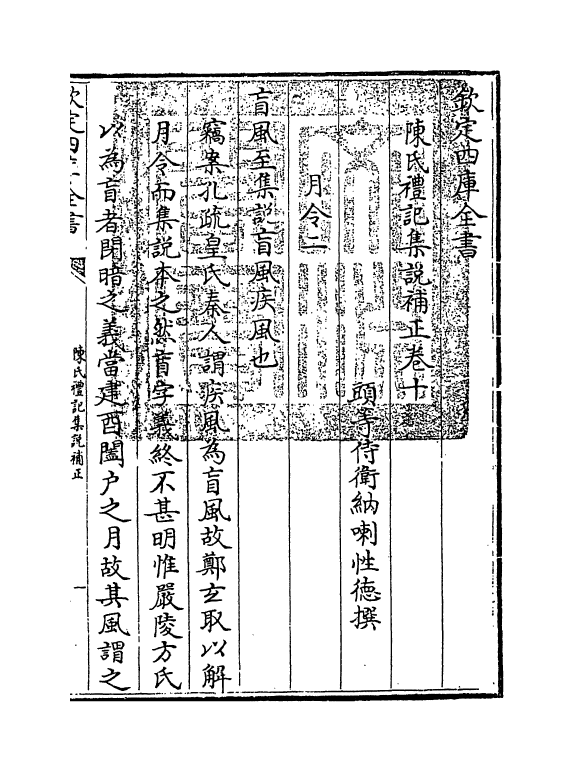 欽定四庫全書
陳氏禮記集說補正卷十
頭等侍衛納喇性德撰
月令二
盲風至集說盲風疾風也
竊案孔疏皇氏秦人謂疾風為盲風故鄭𤣥取以解
月令而集說本之然盲字義終不甚明惟嚴陵方氏
以為盲者閉暗之義當建酉闔户之月故其風謂之
欽定四庫全書
陳氏禮記集說補正
一